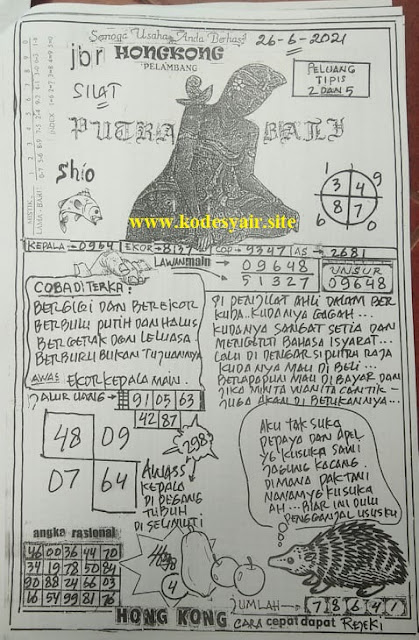 Semoga Usaha Anda Berhasil
26-6-2021
jbr HONGKONG
PELAMBANG
PELUANG
TIPIS
2 DAN 5
SILAT
PUTRA BALI
Shio
1 5
3 4
8 7
6 0
www.kodesyair.site
KEPALA 0964 EKOR 8137 COP 9347 AS 2681
LAWAN main 09648
51327
UNSUR
09648
COBA DI TERKA:
BERGIGI DAN BEREKOR
BERBULU PUTIH DAN HALUS
BERGERAK DAN LELUASA
BERBURU BUKAN TUJUANNYA
AWAS EKOR KEPALA MAIN.
SI PENJUAL AHLI DALAM BER
KUDA.. KUDANYA GAGAH...
KUDANYA SANGAT SETIA DAN
MENGIKUTI BAHASA ISYARAT...
LALU DI DENGAR SI PUTRA RAJA
KUDANYA MAU DI BELI...
BERAPAPUN MAU DI BAYAR DAN
JIKA MINTA WANITA CANTIK -
JUGA AKAN DI BERIKANNYA...
JALUR UANG 91 05 63
42 87
298
48 09
07 64
AWASS
KEPALA
DI PEGANG
TUBUH
DI SELIMUTI
AKU TAK SUKA
PEPAYA DAN APEL
YG KUSUKA SAWI
JAGUNG KACANG.
DIMANA PAK TANI
NANAM YG KUSUKA
AH... BIAR INI DULU
PENGGANJAL USUSKU
angka rasional
46 00 36 44 70
34 19 78 50 84
90 88 24 66 03
16 54 99 81 76
4
JUMLAH 7 8 6 4 1
HONG KONG CARA cepat dapat REJEKI